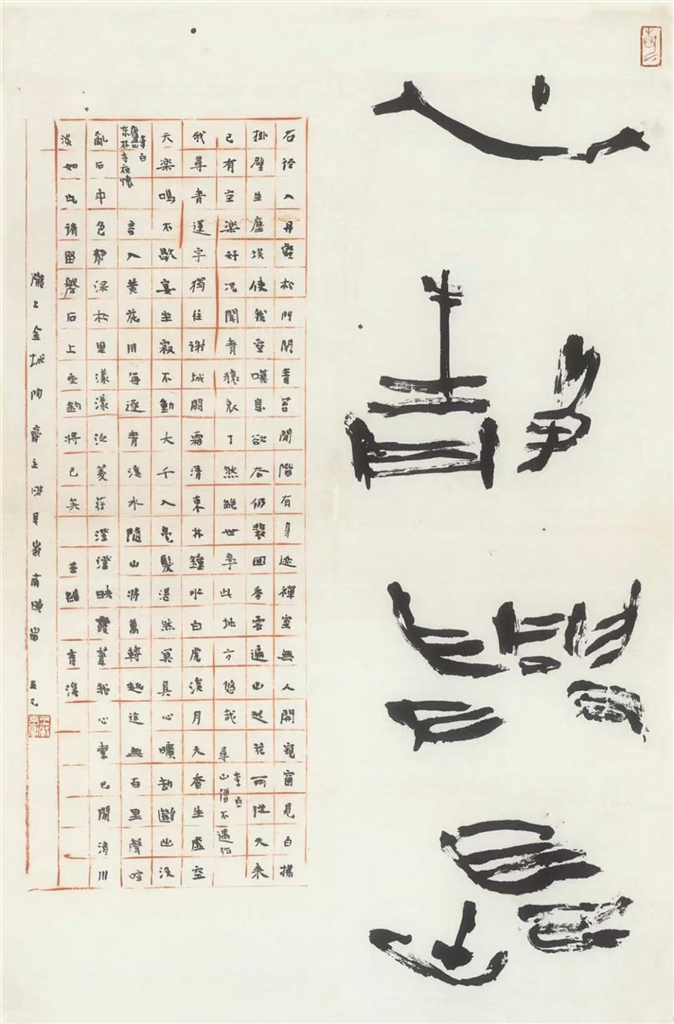 心
静
石徑入丹壑松門閉青苔閑階有鳥迹禪室無人開窺窗見白拂
掛壁生塵埃使我空嘆息欲去仍裴回香雲遍山起花雨從天來
已有空樂好況聞青猿哀了然絕世事此地方悠哉 李白 尋山僧不遇作
我尋青蓮宇獨往謝城闕霜清東林鐘水白虎溪月天香生虛空
天樂鳴不歇宴坐寂不動大千入毫髮湛然冥真心曠劫斷出沒
李白 廬山東林寺夜懷
言入黃花川每逐青溪水隨山將萬轉趣途無百里聲喧
亂石中色靜深松里漾漾泛菱荇澄澄映葭葦我心素已閑清川
淡如此請留磐石上垂釣將已矣 王維 青溪